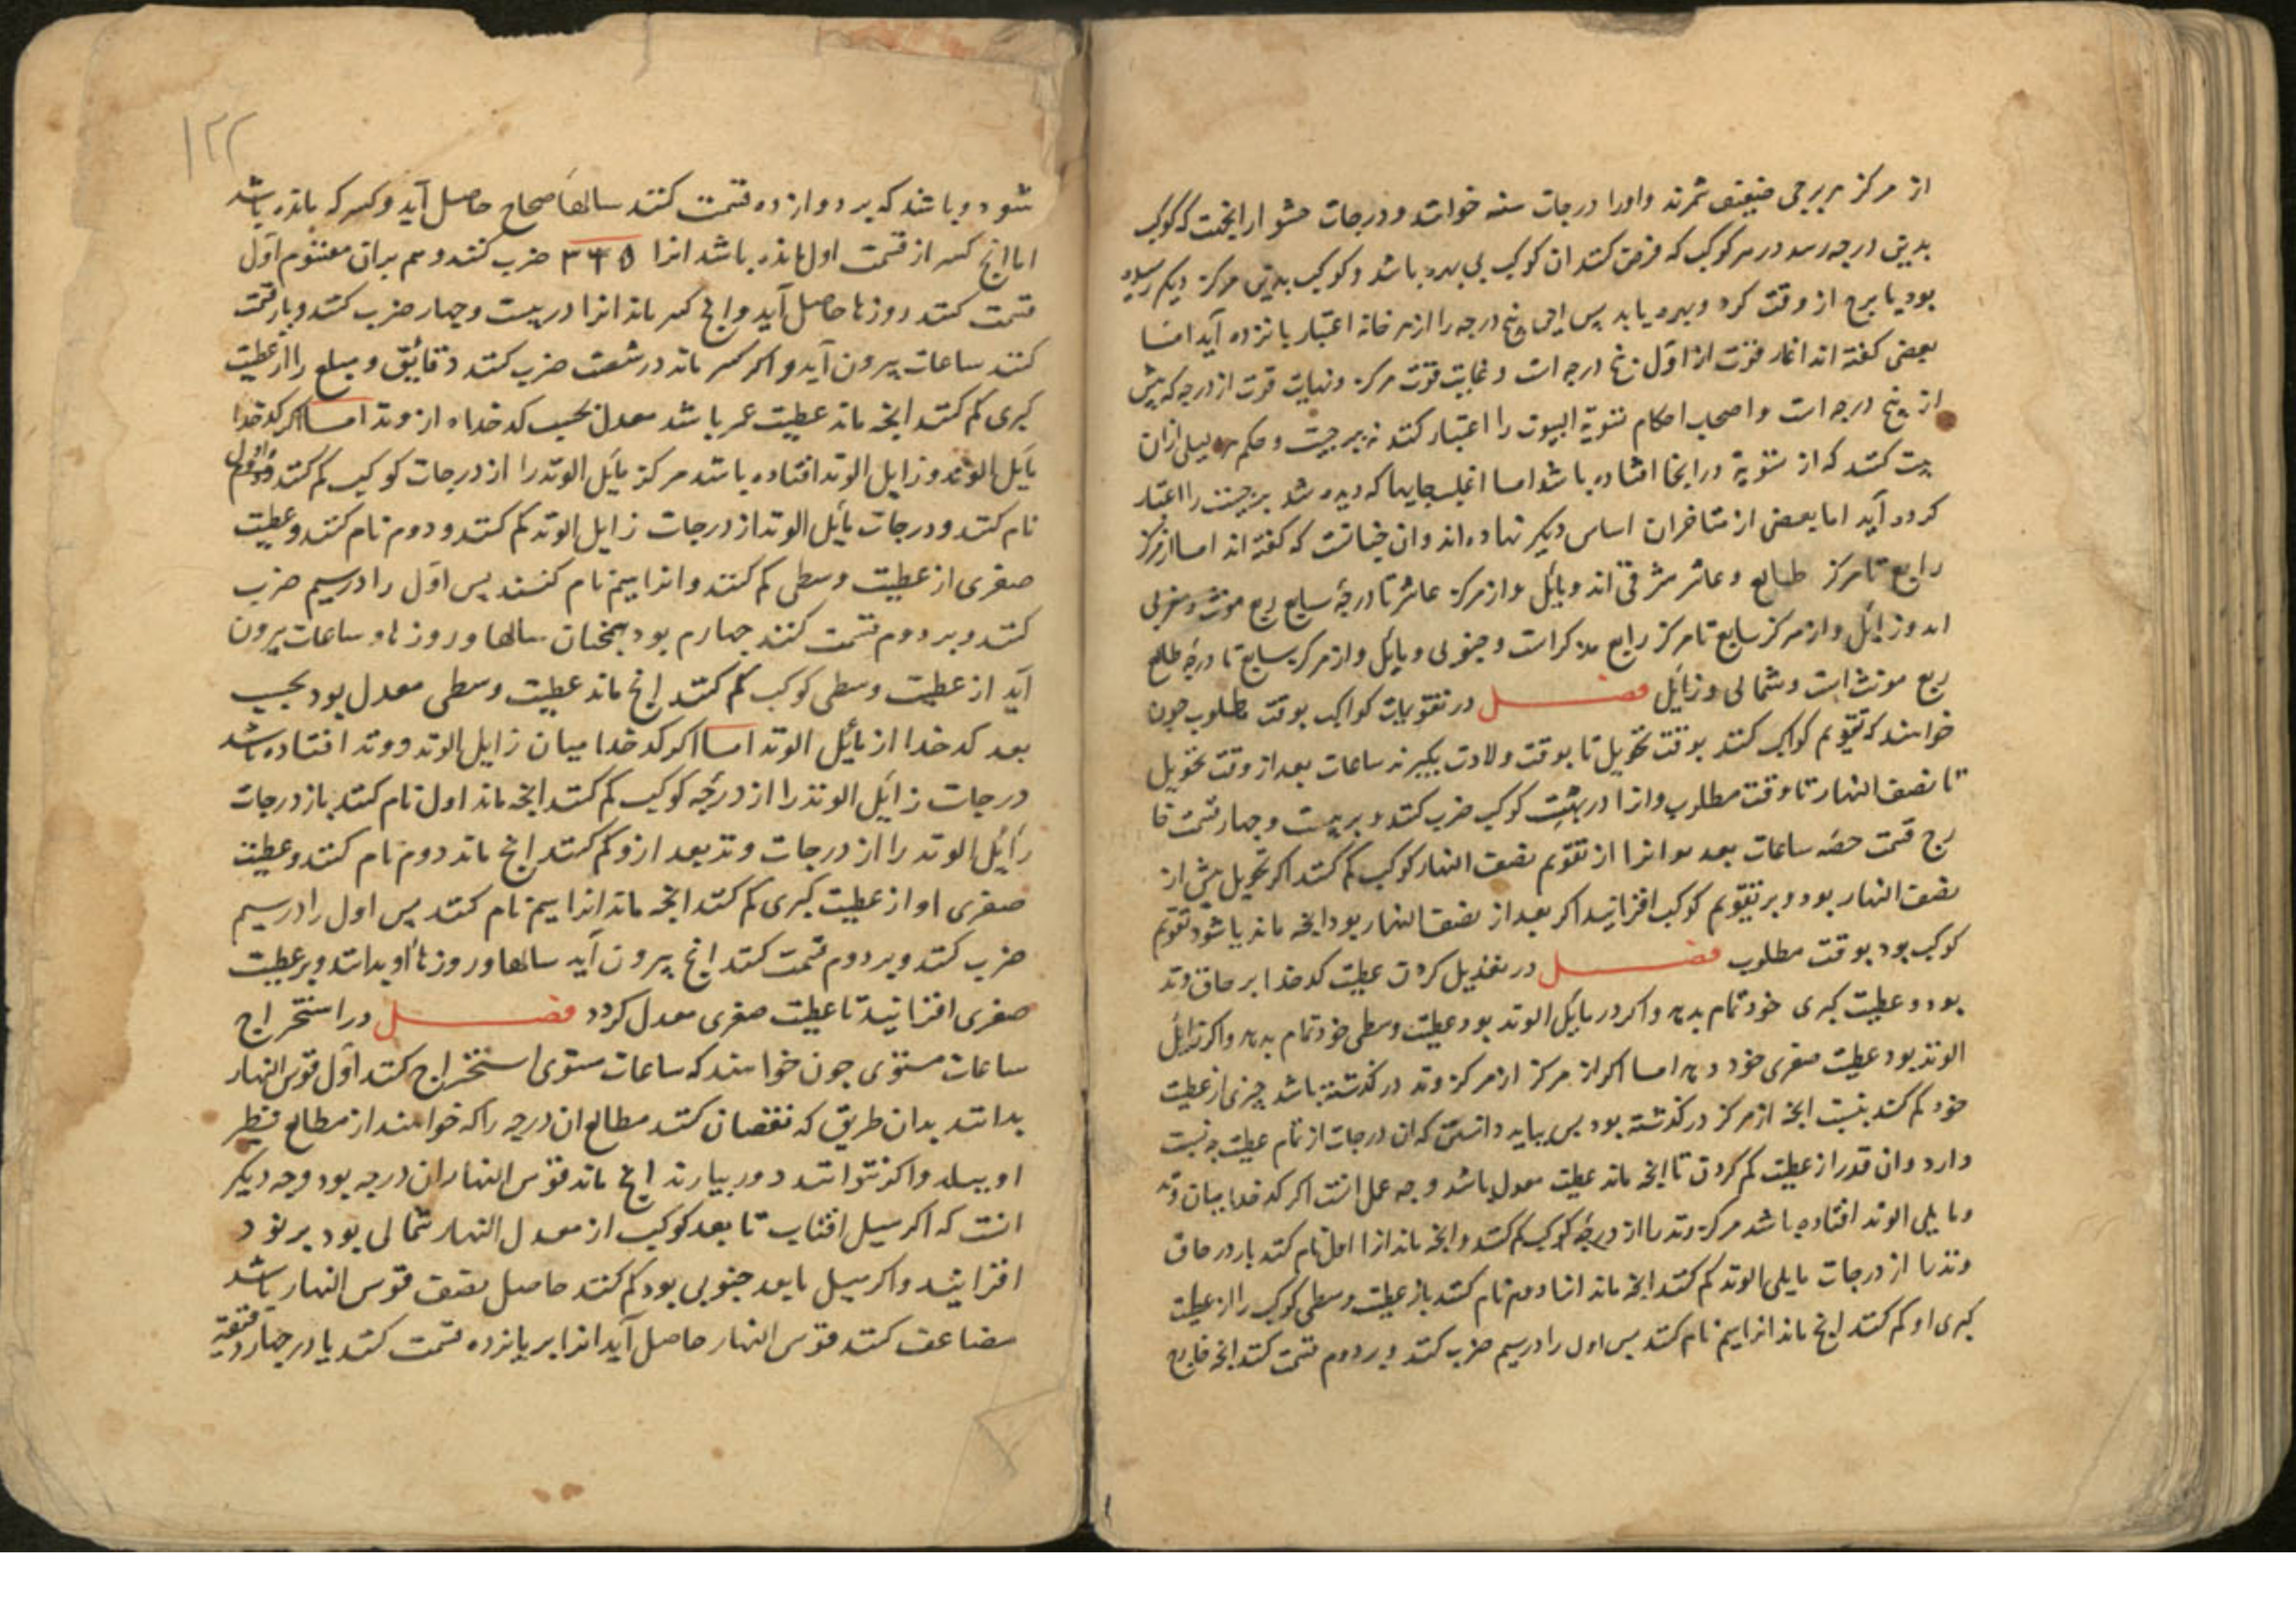 از مرکز هر برجی ضعیف شمرند و او را درجات سنه خوانند و درجات حشو از انجهت که کوکب
بدین درجه رسد در هر کوکب که فرض کنند ان کوکب بی بهره باشد و کوکب بدین مرکز دیکر رسیده
بود یا برج از وقت کرد و بهره یابد پس این پنج درجه را از هر خانه اعتبار پانزده آید اما
بعضی کفته اند اغاز قوت از اول پنج درجه است و غایت قوت مرکز و نهایت قوت از درجه که پیش
از پنج درجه است و اصحاب احکام تسویة البیوت را اعتبار کنند نه برجیت و حکم دلیلی ازان
بیت کنند که از تسویة درانجا افتاده باشد اما اغلب جایها که دیده شد برجیت را اعتبار
کرده آید اما بعضی از متاخران اساس دیکر نهاده اند وان چنانست که کفته اند اما از مرکز
رابع تا مرکز طالع و عاشر شرقی اند و یائل و از مرکز عاشر تا درجۀ سابع ربع مونث و مغربی
اند و زائل و از مرکز سابع تا مرکز رابع مذکر است و جنوبی و یائل و از مرکز سابع تا درجۀ طالع
ربع مونث است و شمالی و زائل فصل در تقویمات کواکب بوقت مطلوب چون
خواهند که تقویم کواکب کنند بوقت تحویل تا بوقت ولادت بکیرند ساعات بعد از وقت تحویل
تا نصف النهار تا وقت مطلوب و انرا در بهت کوکب ضرب کنند و بر بیست و چهار قسمت خا
رج قسمت حصۀ ساعات بعد بود انرا از تقویم نصف النهار کوکب کم کنند اکر تحویل پیش از
نصف النهار بود و بر تقویم کوکب افزایند اکر بعد از نصف النهار بود انچه ماند یا شود تقویم
کوکب بود بوقت مطلوب فصل در تعدیل کردن عطیت کدخدا بر حاق وتد
بود و عطیت کبری خود تمام بدهد و اکر در یائل الوتد بود عطیت وسطی خود تمام بدهد و اکر زائل
الوتد بود عطیت صغری خود دهد اما اکر از مرکز از مرکز وتد در کذشته باشد چیزی از عطیت
خود کم کند بنسبت انچه از مرکز در کذشته بود پس بباید دانستن که ان درجات از تمام عطیت چه نسبت
دارد وان قدر از عطیت کم کردن تا انچه ماند عطیت معدل باشد وجه عمل انست اکر کدخدا میان وتد
و مایلی الوتد افتاده باشد مرکز وتد را از درجۀ کوکب کم کنند و انچه ماند انرا اول نام کنند باز در حاق
وتد را از درجات مایلی الوتد کم کنند انچه ماند انرا دوم نام کنند باز عطیت وسطی کوکب را از عطیت
کبری او کم کنند انچ ماند انرا سیم نام کنند پس اول را در سیم ضرب کنند و بر دوم قسمت کنند انچه خارج
۱۲۲
شود و باشد که بر دوازده قسمت کنند سالهاء صحاح حاصل آید و کسر که مانده باشد
اما انچ کسر از قسمت اول مانده باشد انرا ۳۶۵ ضرب کنند و هم بران مقسوم اول
قسمت کنند روزها حاصل آید و انچ کسر ماند انرا در بیست و چهار ضرب کنند و باز قسمت
کنند ساعات بیرون آید و اکر کسر ماند در شصت ضرب کنند دقایق و مبلغ را از عطیت
کبری کم کنند انچه ماند عطیت عمر باشد معدل بحسب کدخداه از وتد اما اکر کدخدا
یائل الوتد و زایل الوتد افتاده باشد مرکز یائل الوتد را از درجات کوکب کم کنند و اول
نام کنند و درجات یائل الوتد از درجات زایل الوتد کم کنند و دوم نام کنند و عطیت
صغری از عطیت وسطی کم کنند و انرا سیم نام کنند پس اول را در سیم ضرب
کنند و بر دوم قسمت کنند چهارم بود همچنان سالها و روزها و ساعات بیرون
آید از عطیت وسطی کوکب کم کنند انچ ماند عطیت وسطی معدل بود بحسب
بعد کدخدا از یائل الوتد اما اکر کدخدا میان زایل الوتد و وتد افتاده باشد
درجات زائل الوتد را از درجۀ کوکب کم کنند انچه ماند اول نام کنند باز درجات
زائل الوتد را از درجات وتد بعد ازو کم کنند انچ ماند دوم نام کنند و عطیت
صغری او از عطیت کبری کم کنند انچه ماند انرا سیم نام کنند پس اول را در سیم
ضرب کنند و بر دوم قسمت کنند انچ بیرون آید سالها و روزهاء او بدانند و بر عطیت
صغری افزایند تا عطیت صغری معدل کردد فصل در استخراج
ساعات مستوی چون خواهند که ساعات مستوی استخراج کنند اول قوس النهار
بدانند بدان طریق که نقصان کنند مطالع ان درجه را که خواهند از مطالع نظیر
او ببلد و اکر نتوانند دور بیارند انچ ماند قوس النهار ان درجه بود وجه دیکر
انست که اکر میل افتاب تا بعد کوکب از معدل النهار شمالی بود بر نود
افزایند و اکر میل یا بعد جنوبی بود کم کنند حاصل نصف قوس النهار باشد
مضاعف کنند قوس النهار حاصل آید انرا بر پانزده قسمت کنند یا در چهار دقیقه